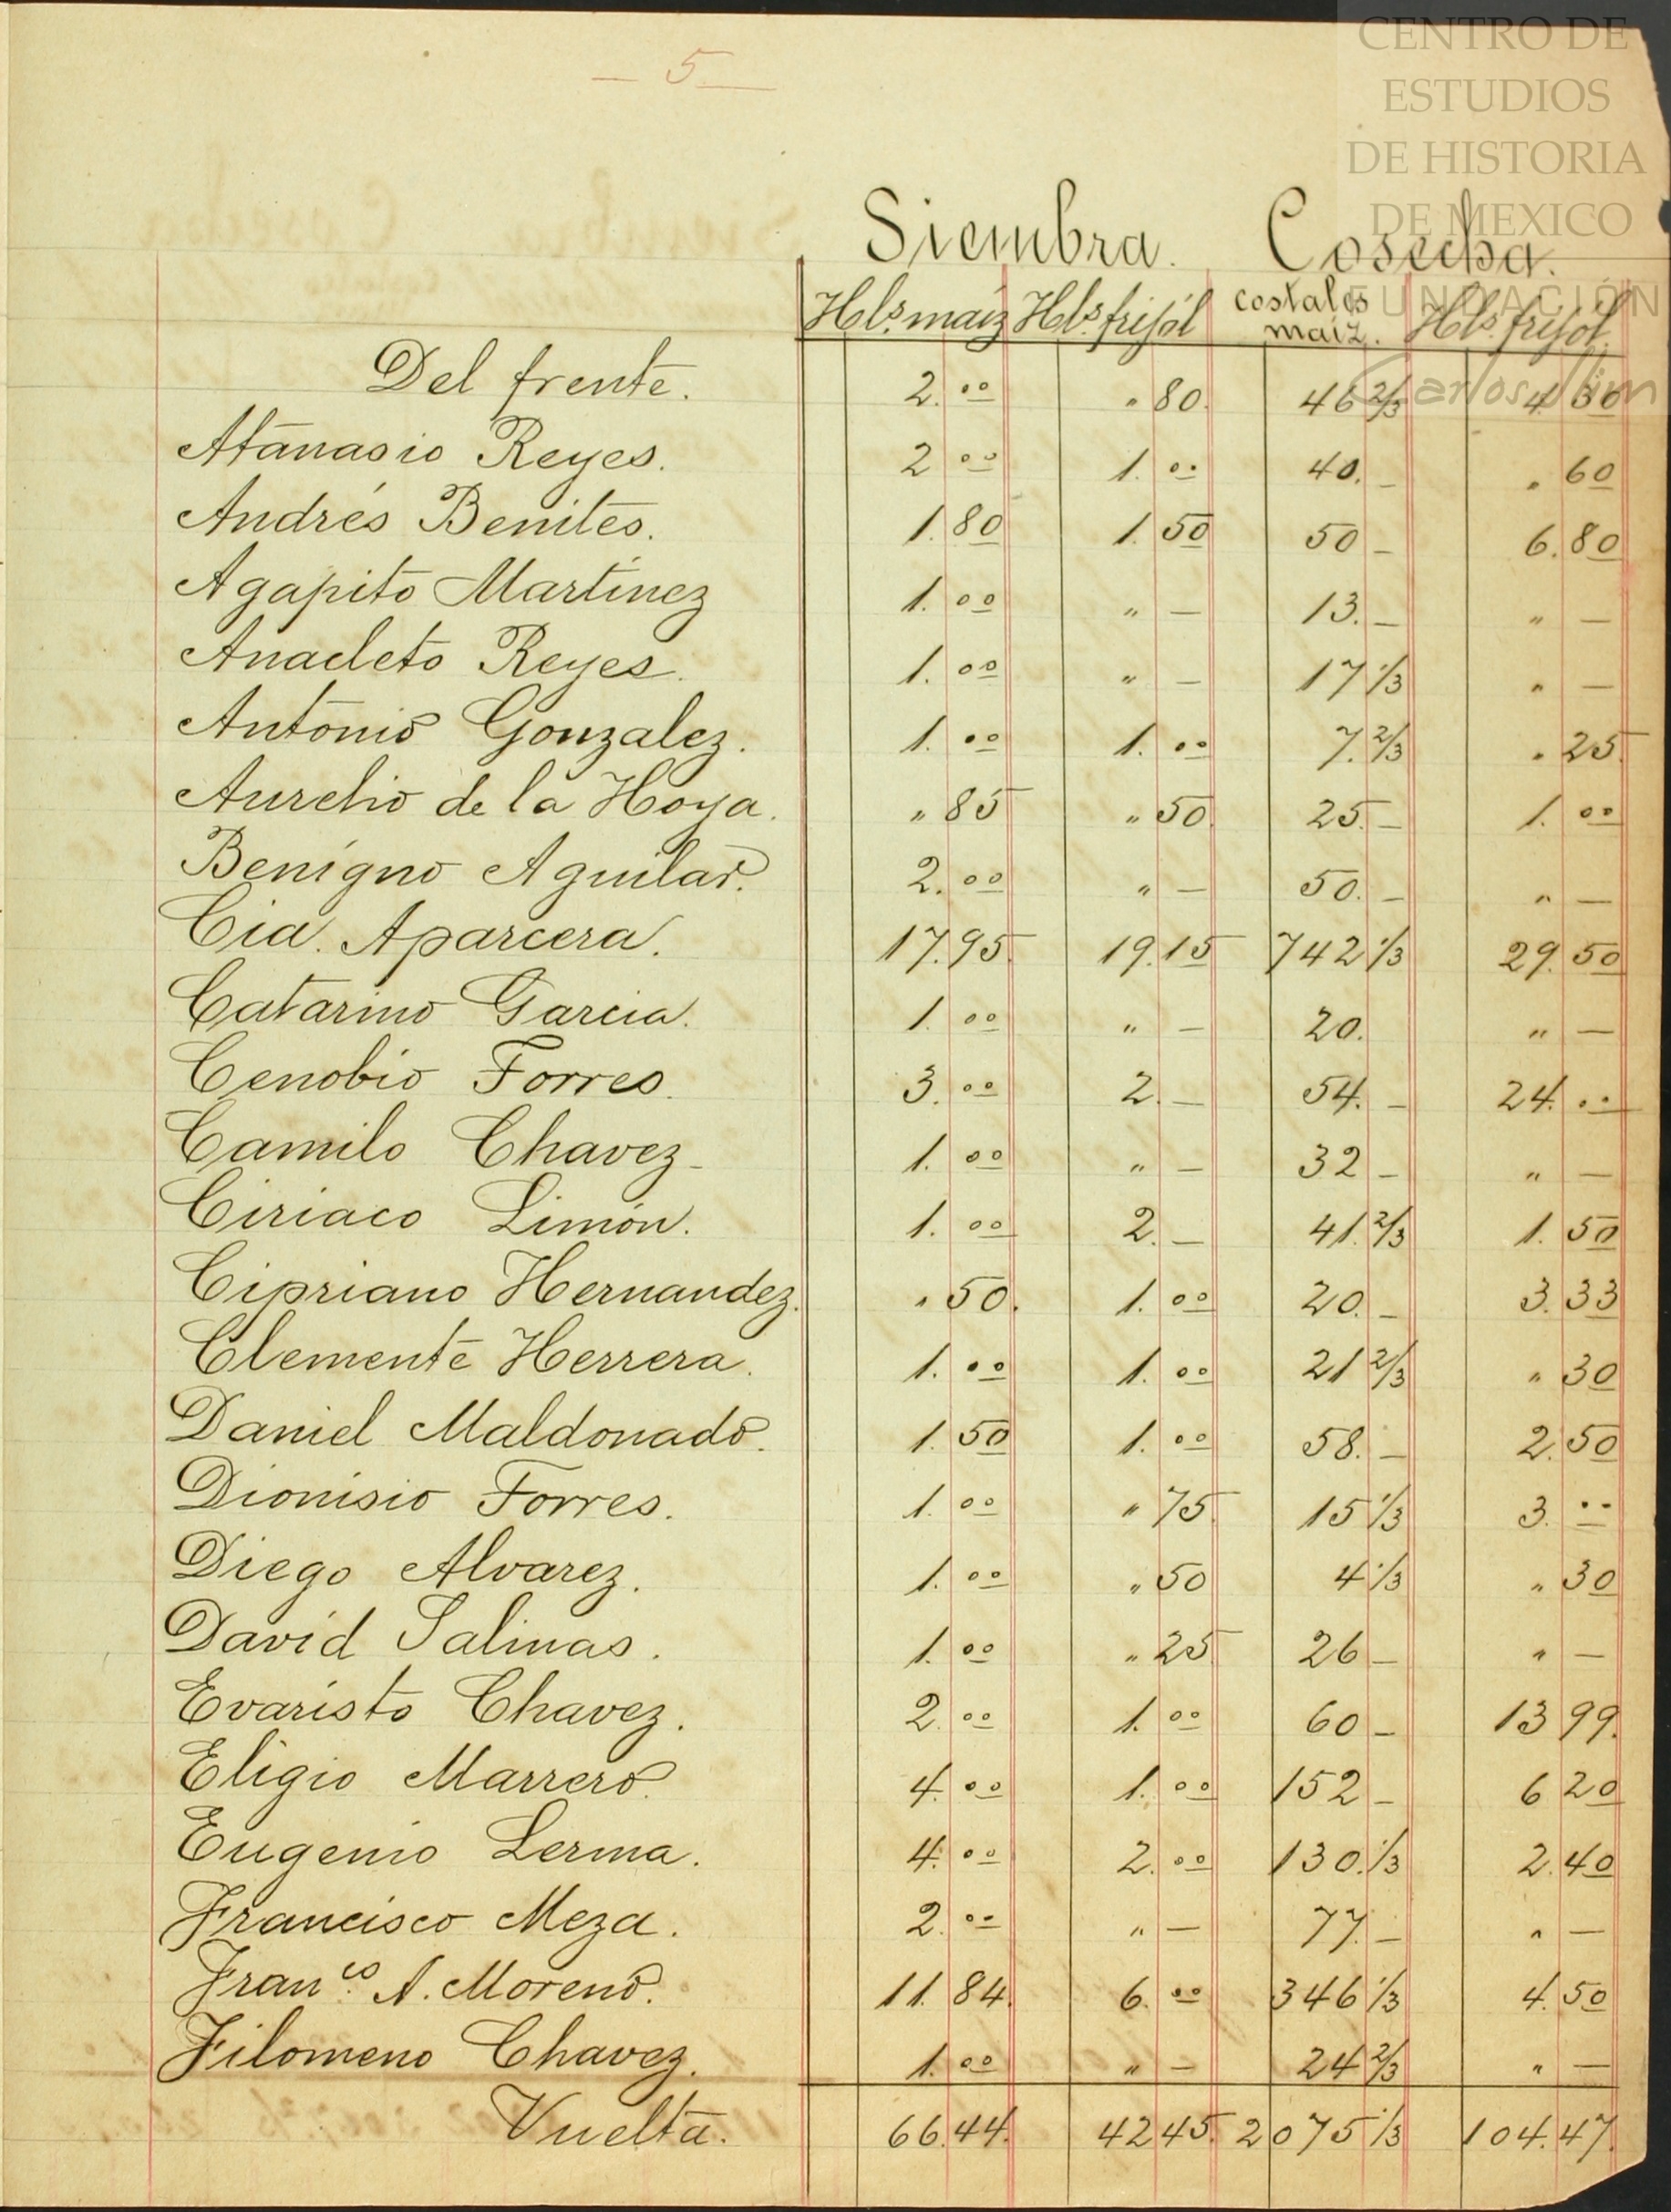 CENTRO DE
ESTUDIOS
DE HISTORIA
DE MEXICO
FUNDACIÓN
Carlos Slim
— 5 —
Siembra. Cosecha.
Hls. maíz Hls. frijol costales maíz. Hls. frijol.
Del frente. 2. 00 " 80. 46 2/3 4 30
Atanasio Reyes. 2 00 1. 00 40. — " 60
Andrés Benites. 1. 80 1. 50 50 — 6. 80
Agapito Martinez 1. 00 " — 13. — " —
Anacleto Reyes. 1. 00 " — 17 1/3 " —
Antonio Gonzalez. 1. 00 1. 00 7. 2/3 " 25.
Aurelio de la Hoya. " 85 " 50. 25. — 1. 00
Benigno Aguilar. 2. 00 " — 50. — " —
Cia. Aparcera. 17. 95. 19. 15 742 1/3 29. 50
Catarino Garcia. 1. 00 " — 20. " —
Cenobio Torres. 3. 00 2. — 54. — 24. 00
Camilo Chavez- 1. 00 " — 32 — " —
Ciriaco Limón. 1. 00 2. — 41. 2/3 1. 50
Cipriano Hernandez. " 50. 1. 00 20. — 3. 33
Clemente Herrera. 1. 00 1. 00 21 2/3 " 30
Daniel Maldonado. 1. 50 1. 00 58. — 2. 50
Dionisio Torres. 1. 00 " 75. 15 1/3 3. 00
Diego Alvarez. 1. 00 " 50 4 1/3 " 30
David Salinas. 1. 00 " 25. 26 — " —
Evaristo Chavez. 2. 00 1. 00 60 — 13 99.
Eligio Marrero. 4. 00 1. 00 152 — 6 20
Eugenio Lerma. 4. 00 2. 00 130. 1/3 2. 40
Francisco Meza. 2. 00 " — 77. — " —
Franco. A. Moreno. 11. 84. 6. 00 346 1/3 4. 50
Filomeno Chavez. 1. 00 " — 24 2/3 " —
Vuelta. 66. 44. 42 45. 2075 1/3 104. 47.